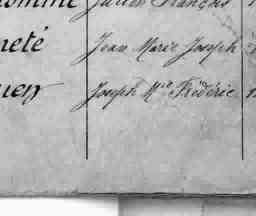 Julien François
neté Jean Marie Joseph
uen Joseph Mie Frédéric